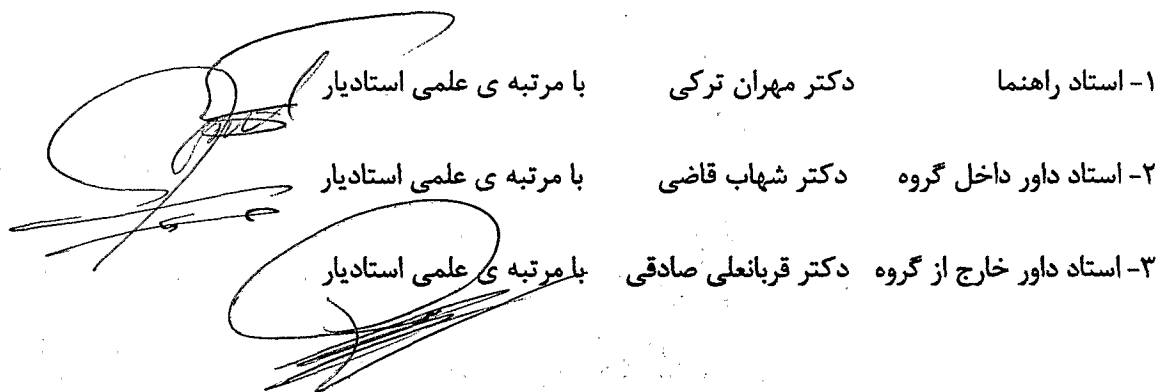 ۱- استاد راهنما دکتر مهران ترکی با مرتبه ی علمی استادیار
۲- استاد داور داخل گروه دکتر شهاب قاضی با مرتبه ی علمی استادیار
۳- استاد داور خارج از گروه دکتر قربانعلی صادقی با مرتبه ی علمی استادیار